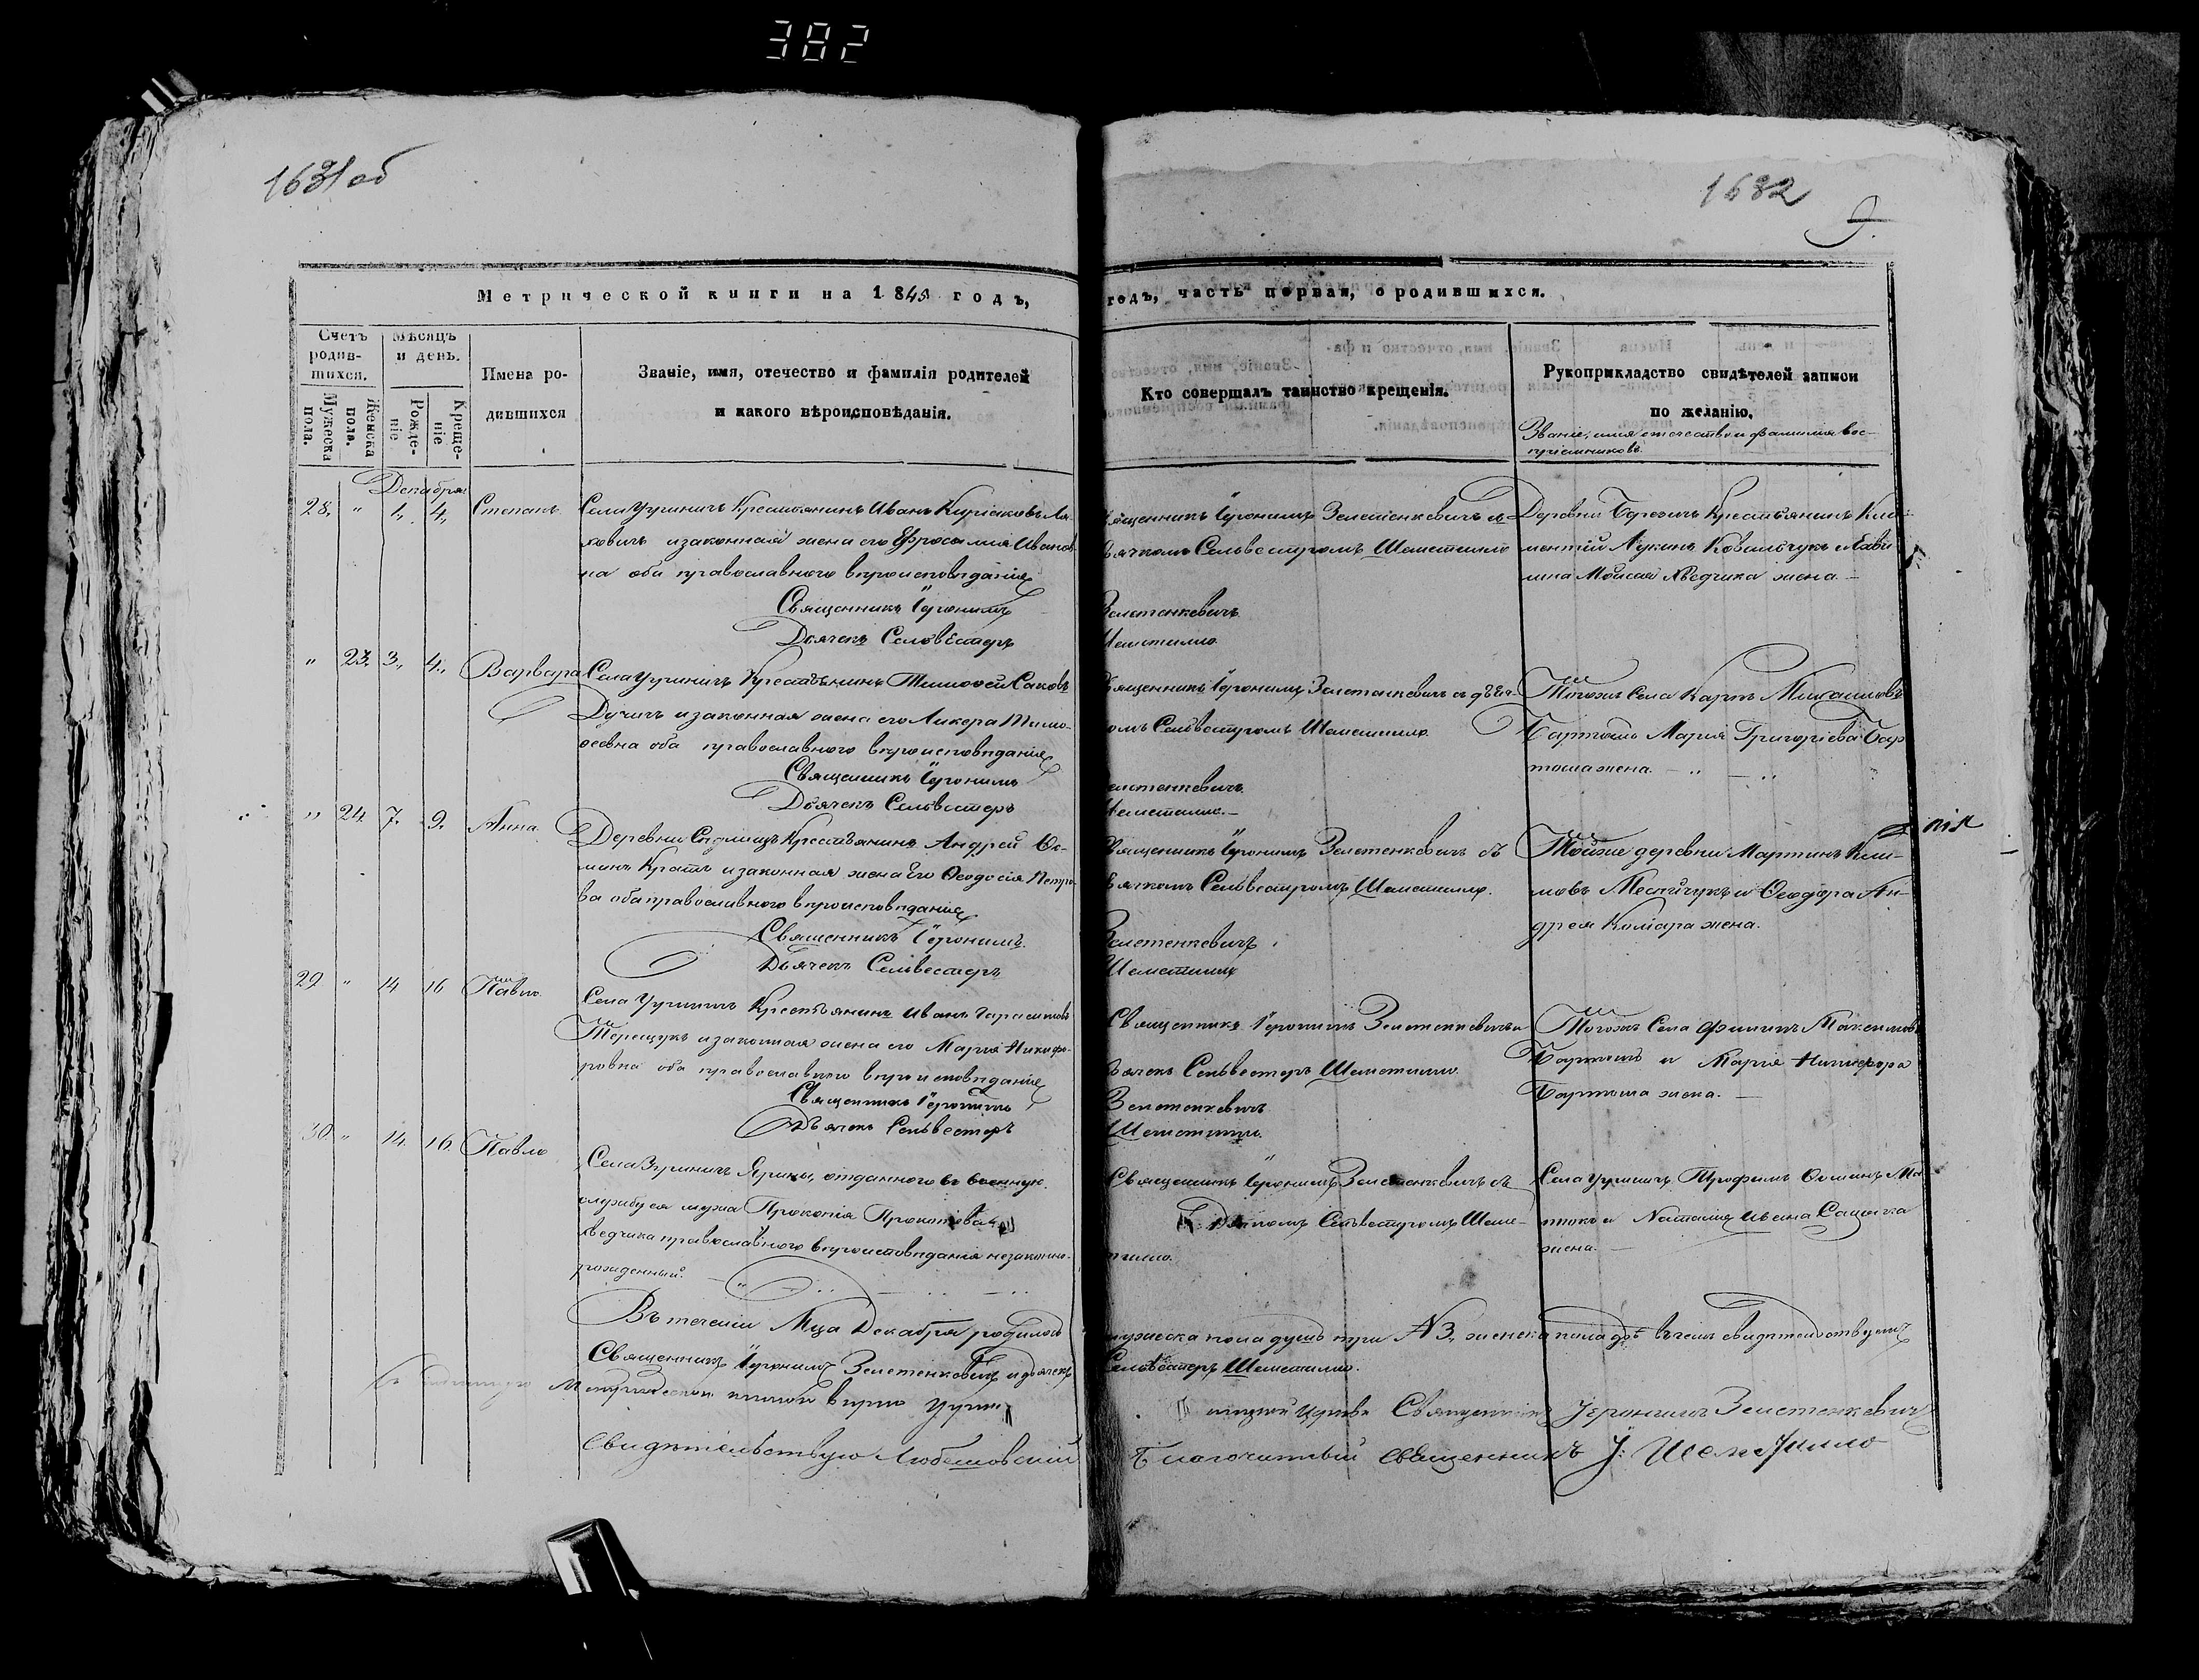 382
1631 об
1632
9.
Метрической книги на 1845 годъ,
годъ, часть первая, о родившихся.
Счетъ родив-шихся.
Мѣсяцъ и день.
Имена ро-дившихся
Званіе, имя, отечество и фамилія родителей
и какого вѣроисповѣданія.
Мужеска пола.
Женска пола.
Рожде-ніе
Креще-ніе
Кто совершалъ таинство крещенія.
Рукоприкладство свидѣтелей записи
по желанію.
Званіе, имя отечество и фамилія вос-
пріемниковъ.
Декабря
28. " 1. 4. Степанъ
Села Угриничъ Крестьянинъ Иванъ Киріаковъ
и законная жена его Ефросинія Иванов
на оба православнаго вѣроисповѣданія
Священникъ Іеронимъ
Дьячекъ Селвестеръ
священникъ Іеронимъ Зелетенкевичъ съ
ячкомъ Селвестромъ Шеметилло
Зелетенкевичъ
Шеметилло.
Деревни Березичъ Крестьянинъ Кли-
ментій Лукинъ Ковальчукъ и
Мойсея жена.
" 23. 3. 4. Варвара
Села Угриничъ Крестьянинъ Тимофей Саковъ
Дучичъ и законная жена его Ликера Тимо-
ѳеевна оба православнаго вѣроисповѣданія
Священникъ Іеронимъ
Дьячекъ Селвестеръ
священникъ Іеронимъ Зелетенкевичъ съ дья-
омъ Селвестромъ Шеметилло
елетенкевичъ
Шеметилло.
Тогожъ Села Карпъ Михаиловъ
Бартошъ Марія Григоріева Бар
тоша жена.
" 24. 7. 9. Анна
Деревни Крестьянинъ Андрей Ѳо-
минъ Кратъ и законная жена Его Ѳеодосія Петро-
ва оба православнаго вѣроисповѣданія
Священникъ Іеронимъ
Дьячекъ Селвестеръ
священникъ Іеронимъ Зелетенкевичъ съ
ячкомъ Селвестромъ Шеметилло.
Зелетенкевичъ
Шеметилло
Тойже деревни Мартинъ Кли-
мовъ и Ѳеодора Ан-
дрея Коляра жена.
29 " 14 16 Павло
Села Угриничъ Крестьянинъ Иванъ Герасимовъ
Терещукъ и законная жена его Марія Никифо-
ровна оба православнаго вѣроисповѣданія
Священникъ Іеронимъ
Дьячекъ Селвестеръ
Священникъ Іеронимъ Зелетенкевичъ и
дьячекъ Селвестеръ Шеметилло
Зелетенкевичъ
Шеметилло.
Тогожъ Села Филипъ Максимовъ
Бартошъ и Марія Никифора
Бартоша жена.
30 " 14. 16. Павло
Села Угриничъ отданного въ военную
службу ея мужа Прокопія
православнаго вѣроисповѣданія незаконно-
рожденный.
Священникъ Іеронимъ Зелетенкевичъ съ
Дьячкомъ Селвестромъ Шеме-
тилло.
Села Угриничъ Трофимъ Ѳоминъ
и Наталія Ивана
жена.
Въ теченіи Мца Декабря родилось
мужеска пола душъ три № 3, женска пола двѣ въ чемъ свидѣтельствуемъ
Священникъ Іеронимъ Зелетенкевичъ и дьячекъ
Селвестеръ Шеметилло.
церкви Священникъ Іеронимъ Зелетенкевичъ
Свидѣтельствую Любешовскій
Благочинный священникъ І: Шеметилло